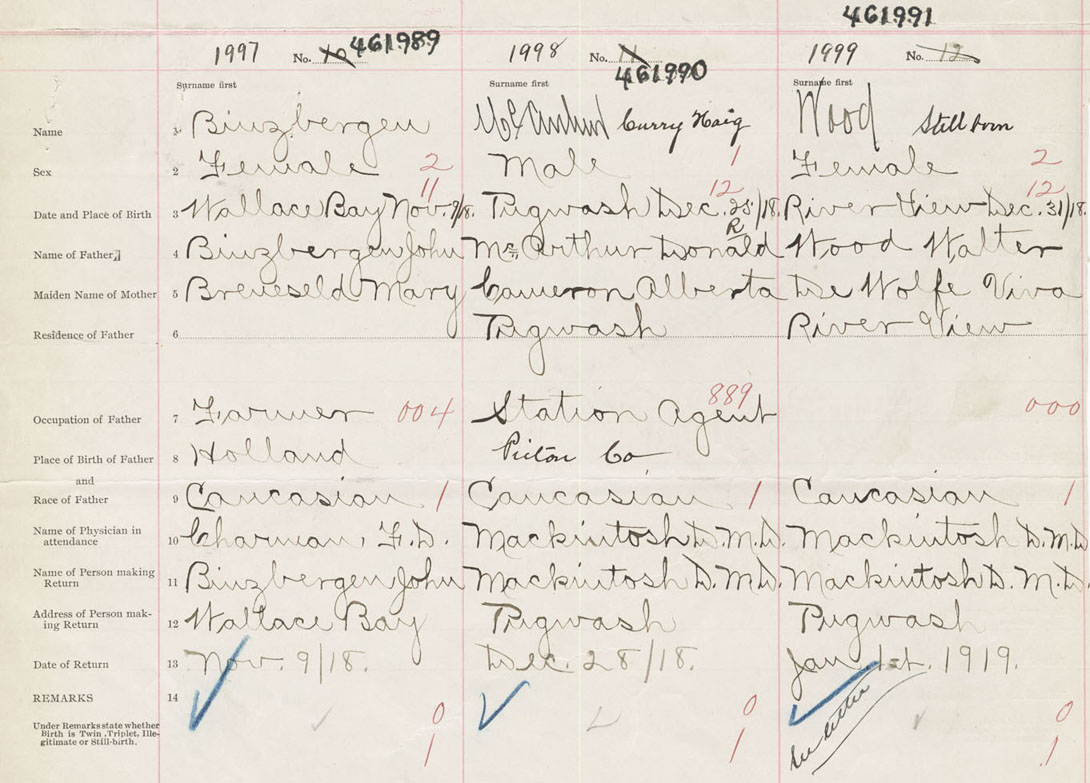 461991
1997 No. 10 461989 1998 No. 11 461990 1999 No. 12
Surname first Surname first Surname first
Name 1 Binzbergen McArthur Curry Haig Wood Still born
Sex 2 Female 2 Male 1 Female 2
11 12 12
Date and Place of Birth 3 Wallace Bay Nov. 9/18. Pugwash Dec. 25/18. River View Dec. 31/18.
R
Name of Father 4 Binzbergen John McArthur Donald Wood Walter
Maiden Name of Mother 5 Mary Cameron Alberta De Wolfe Viva
Residence of Father 6 Pugwash River View
Occupation of Father 7 Farmer 004 Station Agent 889 000
Place of Birth of Father 8 Holland Pictou Co
and
Race of Father 9 Caucasian 1 Caucasian 1 Caucasian 1
Name of Physician in
attendance 10 Charman, F.D. Mackintosh D. M.D. Mackintosh D. M.D.
Name of Person making
Return 11 Binzbergen John Mackintosh D. M.D. Mackintosh D. M.D.
Address of Person mak-
ing Return 12 Wallace Bay Pugwash Pugwash
Date of Return 13 Nov. 9/18. Dec. 28/18. Jan. 1st. 1919.
REMARKS 14
See letter
Under Remarks state whether 0 0 0
Birth is Twin, Triplet, Ille-
gitimate or Still-birth. 1 1 1